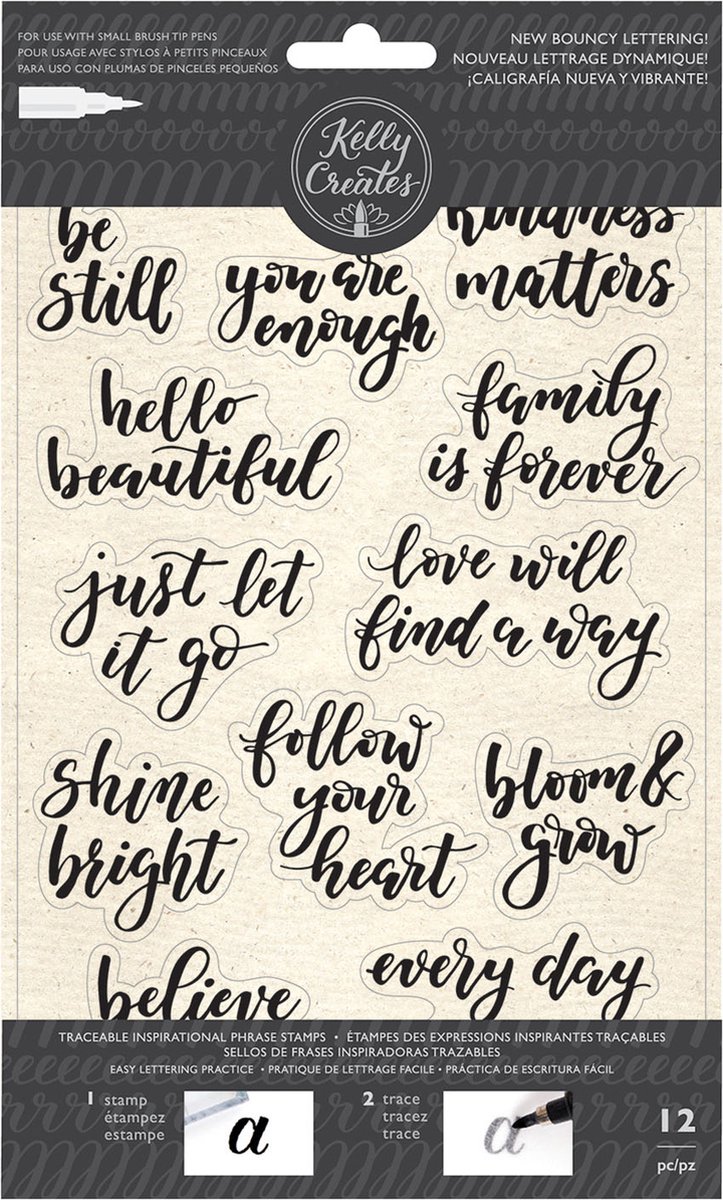 FOR USE WITH SMALL BRUSH TIP PENS
POUR USAGE AVEC STYLOS À PETITS PINCEAUX
PARA USO CON PLUMAS DE PINCELES PEQUEÑOS
NEW BOUNCY LETTERING!
NOUVEAU LETTRAGE DYNAMIQUE!
¡CALIGRAFÍA NUEVA Y VIBRANTE!
Kelly
Creates
be
still
you are
enough
kindness
matters
hello
beautiful
family
is forever
just let
it go
love will
find a way
shine
bright
follow
your
heart
bloom &
grow
believe
every day
TRACEABLE INSPIRATIONAL PHRASE STAMPS • ÉTAMPES DES EXPRESSIONS INSPIRANTES TRAÇABLES
SELLOS DE FRASES INSPIRADORAS TRAZABLES
EASY LETTERING PRACTICE • PRATIQUE DE LETTRAGE FACILE • PRÁCTICA DE ESCRITURA FÁCIL
1 stamp
étampez
estampe
a
2 trace
tracez
trace
a
12
pc/pz